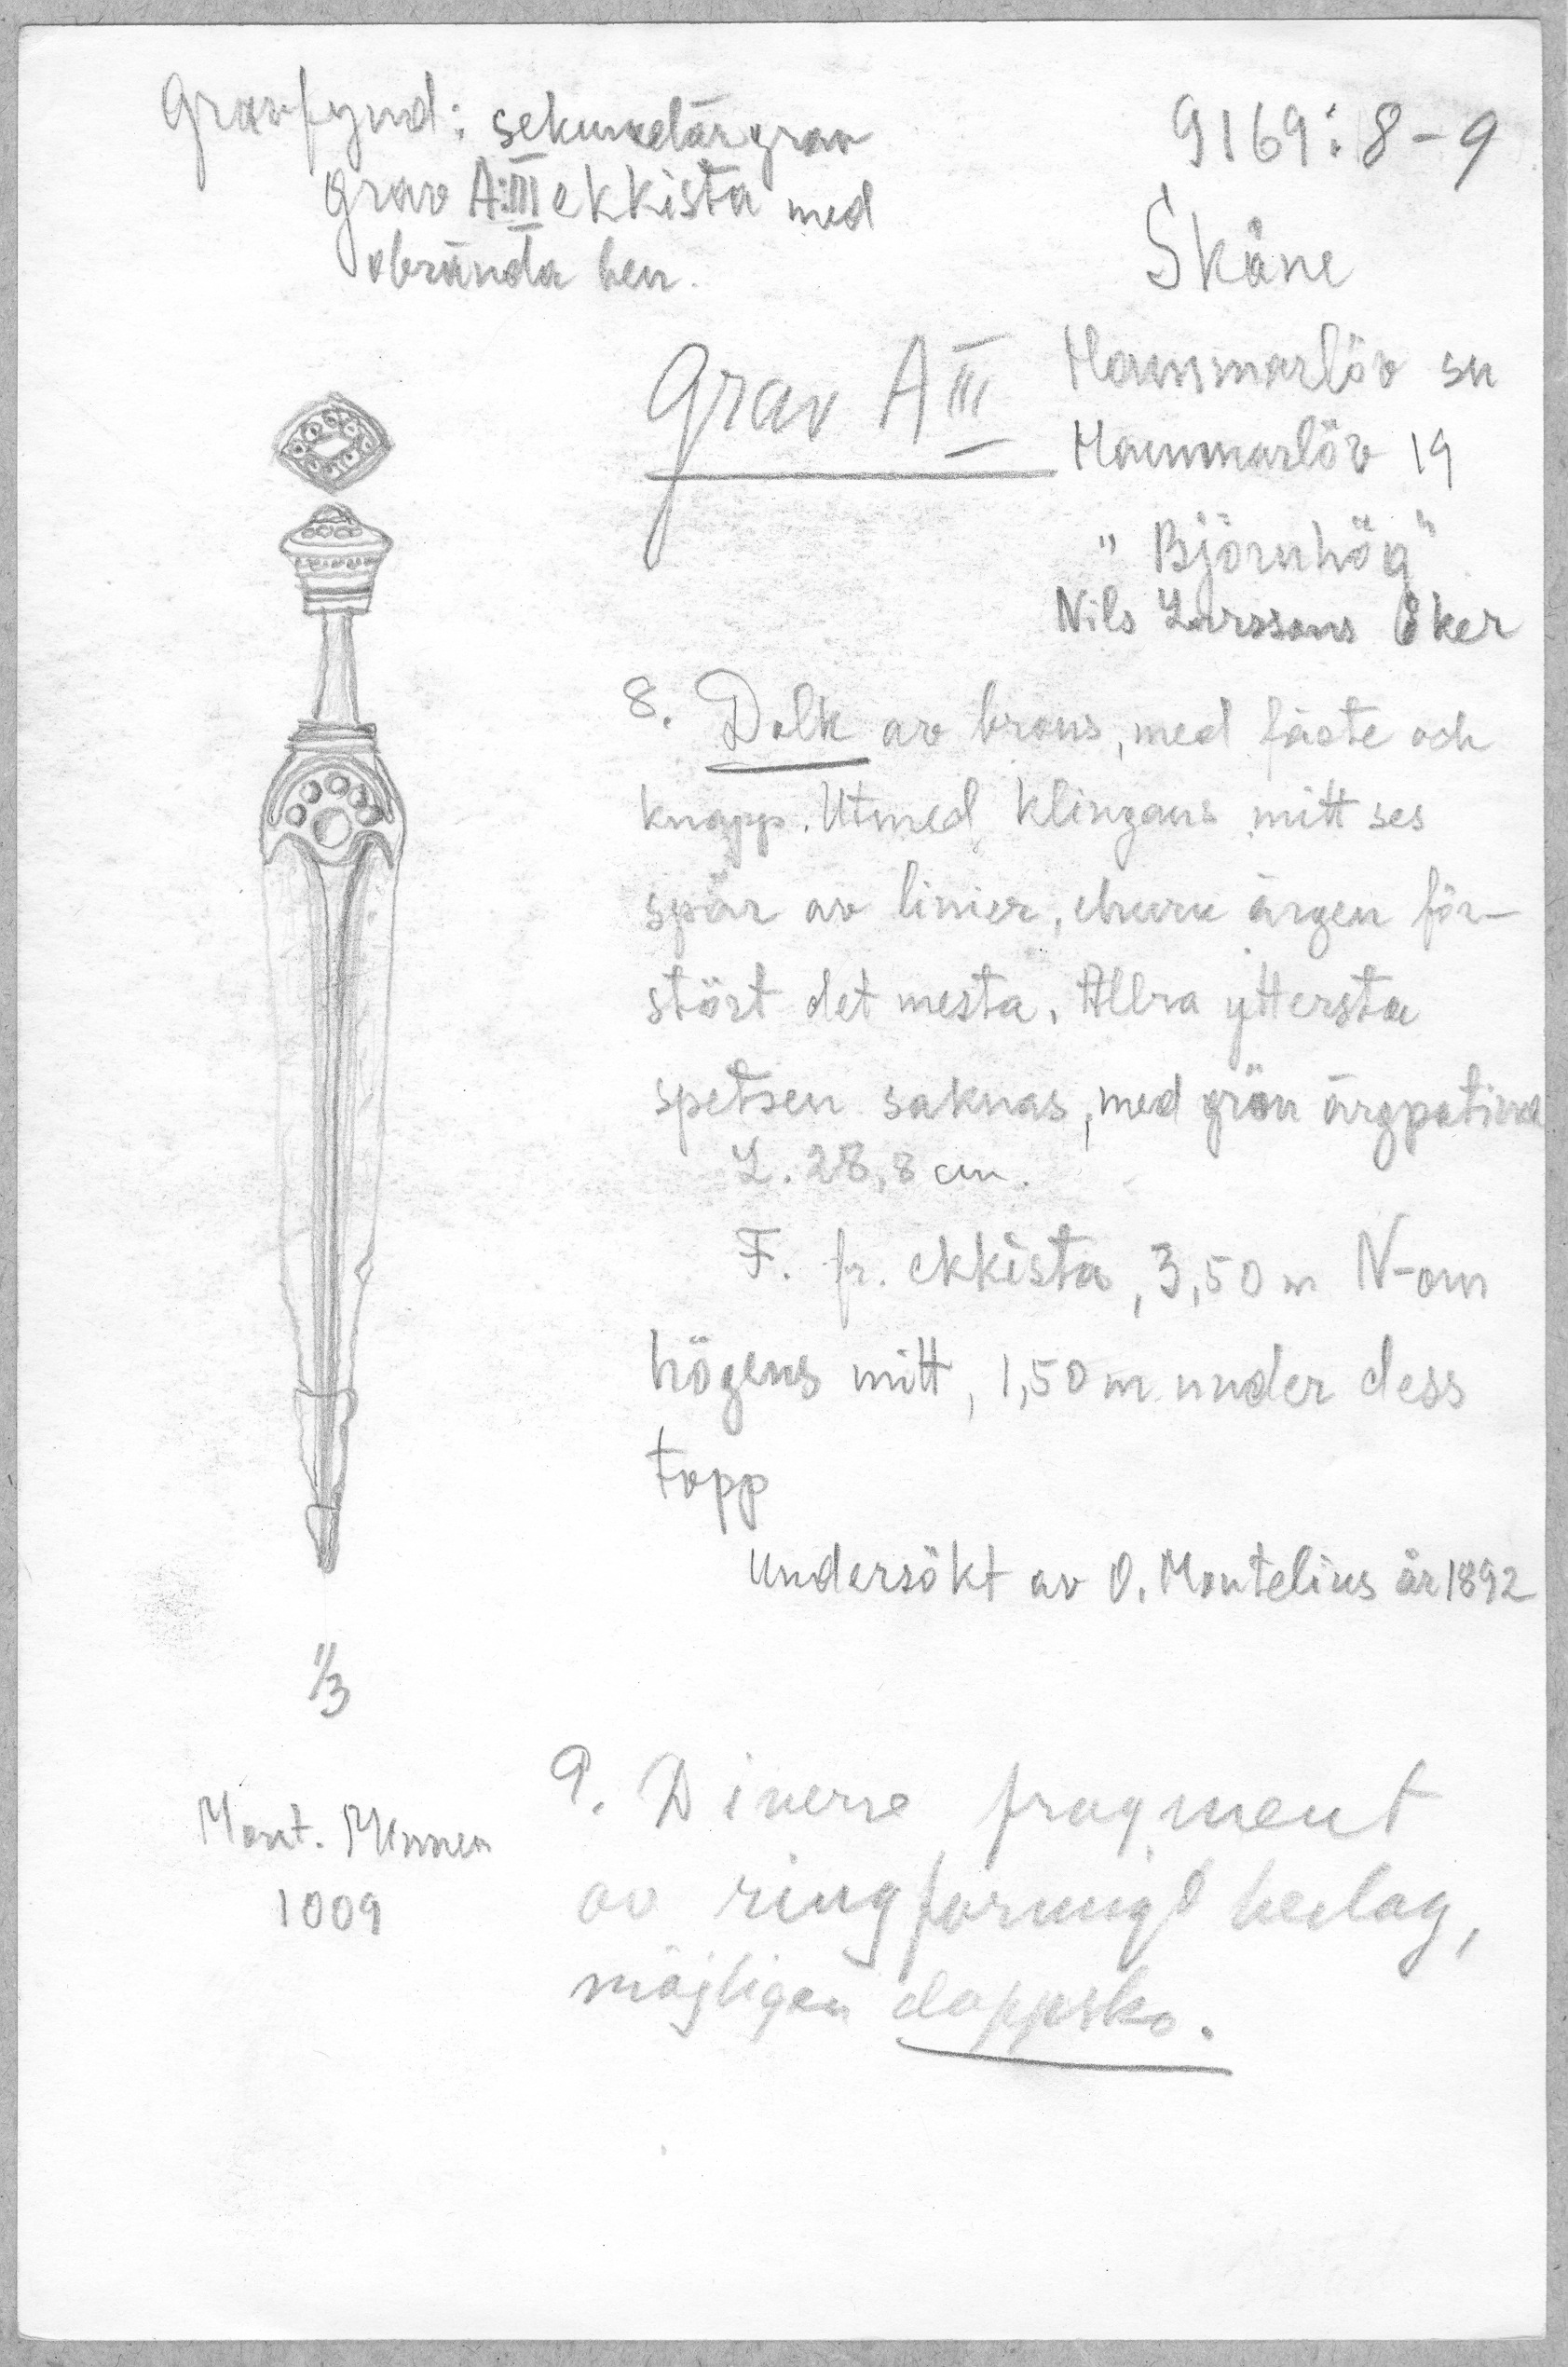 Gravfynd: sekundärgrav
grav A:III ekkista med
obrända ben.
9169:8-9
Skåne
Hammarlöv sn
Hammarlöv 19
"Björnhög"
Nils Larssons åker
Grav A III
8. Dolk av brons, med fäste och
knapp. Utmed klingans mitt ses
spår av linier, ehuru ärgen för-
stört det mesta. Allra yttersta
spetsen saknas, med grön ärgpatina
L. 28,8 cm.
F. fr. ekkista, 3,50 m N-om
högens mitt, 1,50 m under dess
topp
Undersökt av O. Montelius år 1892
1/3
Mont. Minnen
1009
9. Diverse fragment
av ringformigt beslag,
möjligen doppsko.